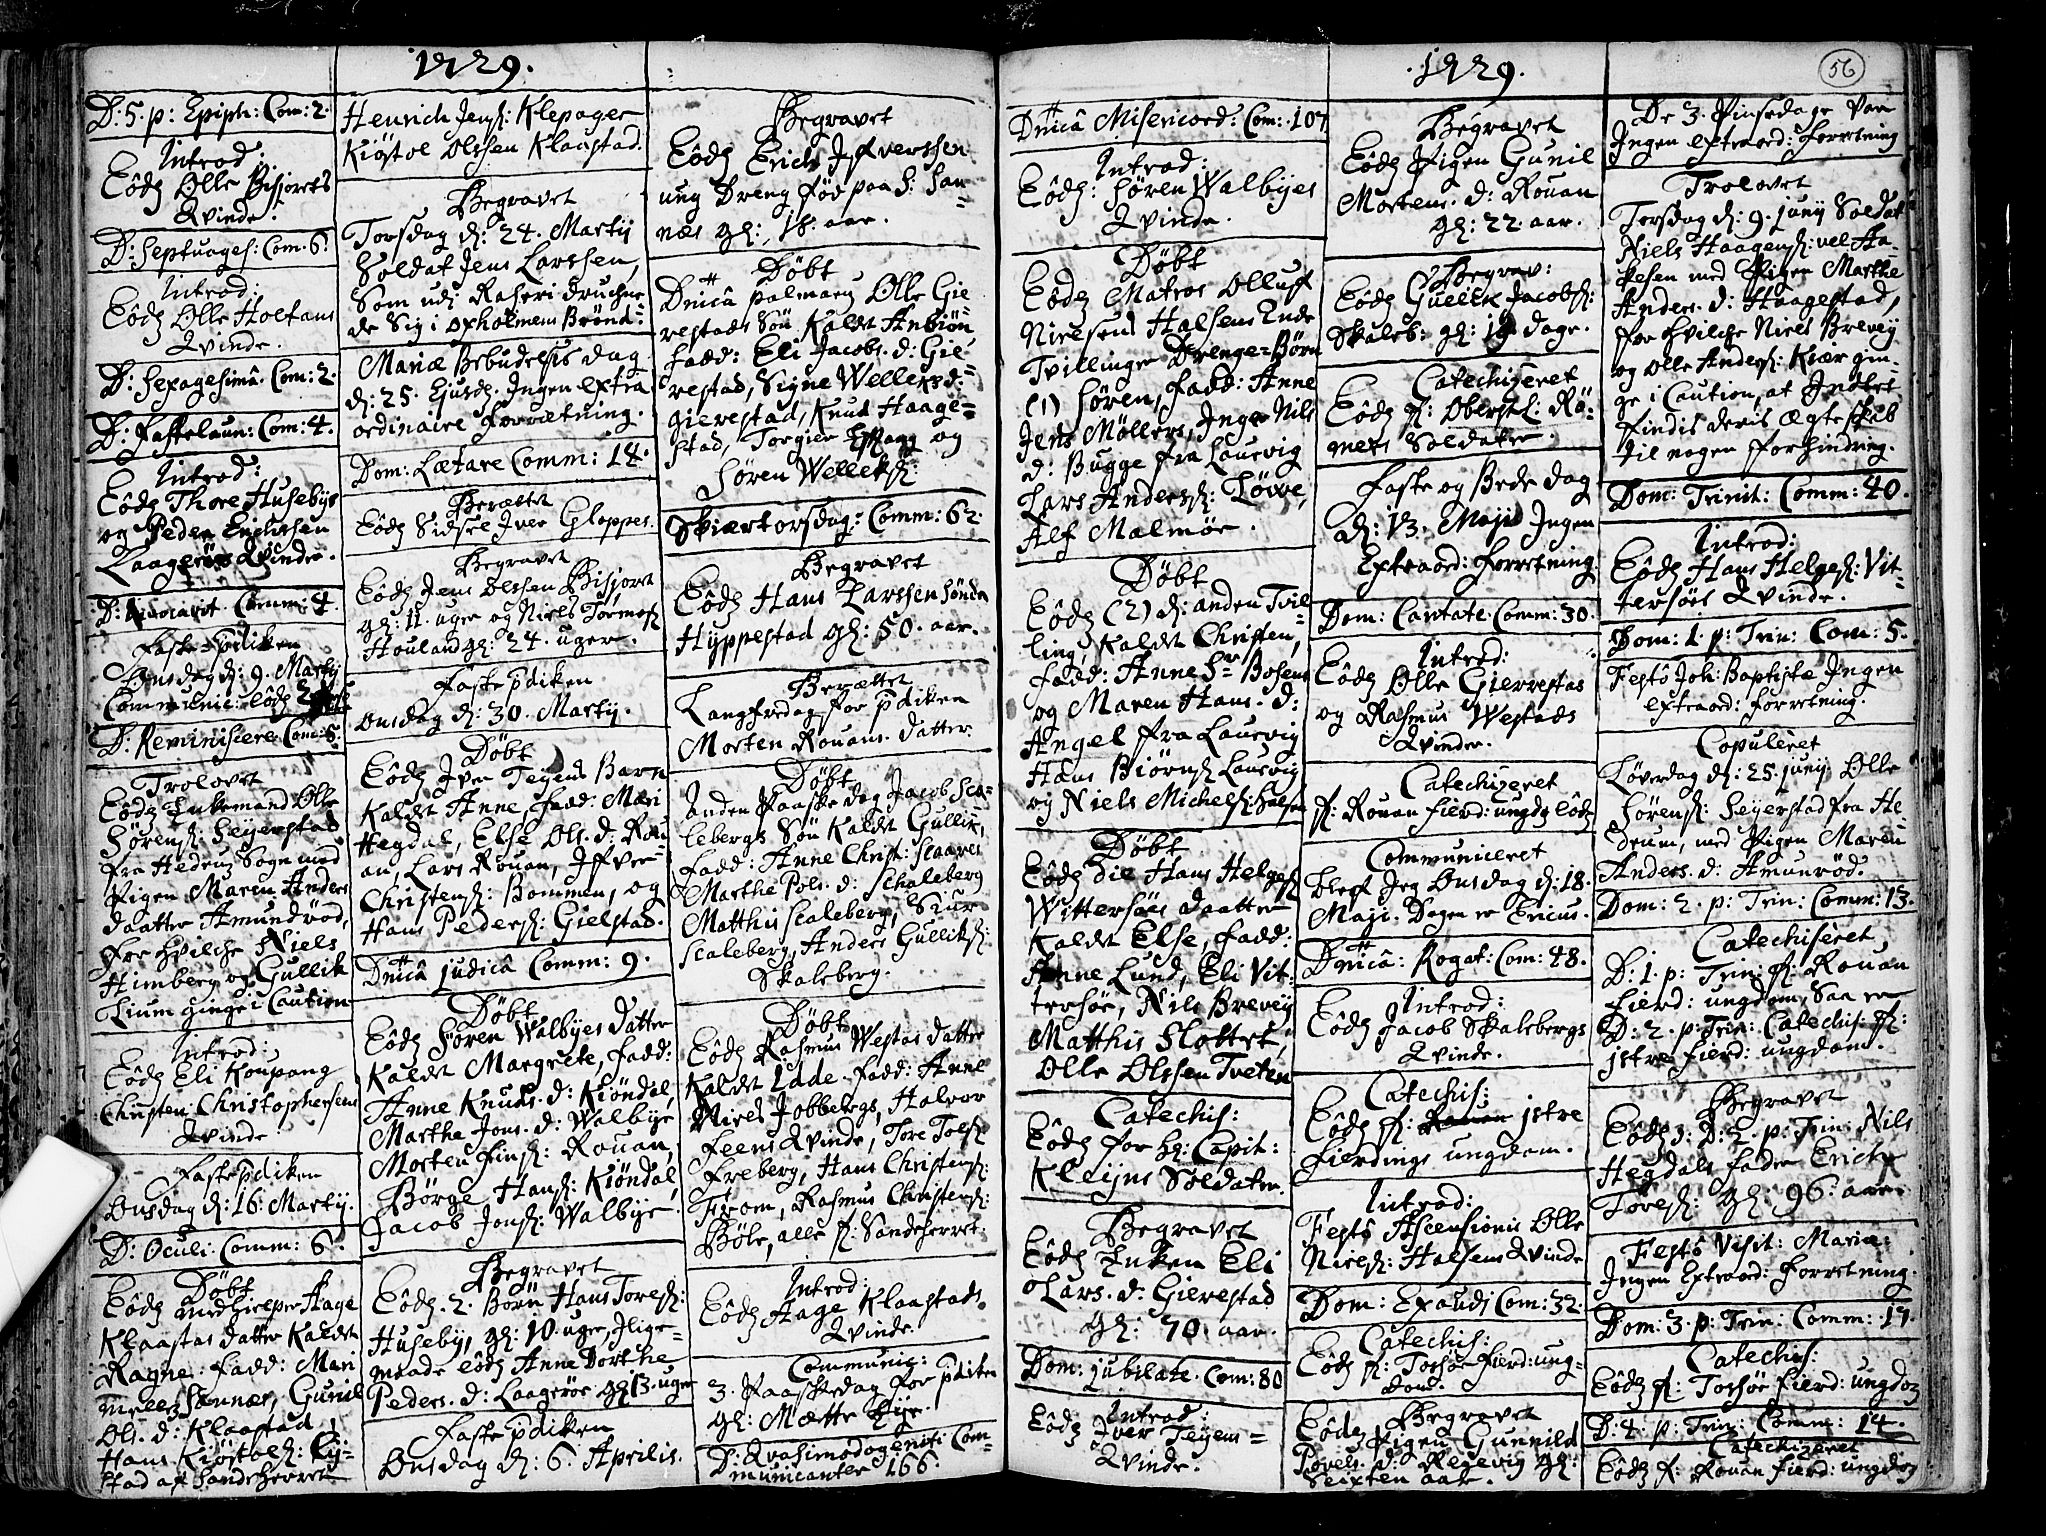 1729.
D: 5. p: Epiph: Com: 2.
Introd:
Eôdẽ Olle Bisjorets
Qvinde.
D: Septuages: Com. 6.
Introd:
Eôdẽ Olle Holtans
Qvinde.
D: Sexagesimâ. Com: 2.
D: Fastelaun: Com: 4.
Introd:
Eôdẽ Thore Husebÿes
og Peder Erichsen
Laagerøe Qvinder.
D: Invocavit. Comm: 4.
Faste-Pdiken
Onsdag d: 9. Martij
Communic: eôdẽ
D. Reminiscere Com: 6:
Trolovet
Eôdẽ Enkemand Olle
Sørens: Seÿerstad
fra Hedrum Sogn med
Pigen Maren Anders
daatter Amundrød,
for hvilche Niels
Himberg og Gullik
Lium ginge i Caution
Introd:
Eôdẽ Eli Koupang
Christen: Christophersens
Qvinde
Faste Pdiken
Onsdag d: 16: Martij.
D: Oculi. Comm: 6.
Døbt
Eôdẽ med Hage
Klaastas datter Kaldet
Ragne. Fadd: Mari
Sønnæs, Gunil
Ols. d: Klaastad,
Hans Kiøstols:
stad af Sandeherret
Henrich Jens: Klepager
Kiøstol Olssen Klaastad.
Begravet
Torsdag d: 24. Martij
Soldat Jens Larssen,
Som udi Raseri druchne-
de Sig i oxholmens Brønd:
Mariæ Bebudelsis dag
d: 25. Ejusdẽ. Ingen extra
ordinaire forretning.
Dom: Lætare Comm: 14.
Berættet
Eôdẽ Sidsel Iver Gloppes.
Begravet
Eôdẽ Jens Olssen Bisjoret
gl: 11. uger og Niels Tormos:
Houland gl: 24. uger.
Faste Pdiken
Onsdag d: 30. Martij.
Døbt
Eôdẽ Iver Teÿens Barn
Kaldet Anne, Fadd: Mari
Hegdal, Else Ols. d: Rou
an, Lars Rouan, Ifver
Christens: Bommen, og
Hans Peders: Gielstad.
Dnicâ judicâ Comm: 9.
Døbt
Eôdẽ Søren Walbÿes datter
Kaldet Margrete, Fadd:
Anne Knuds. d: Kiøndal,
Marthe Jons. d: Walbÿe
Morten Fins: Rouan,
Børge Hans: Kiøndal,
Jacob Jons: Walbÿe.
Begravet
Eôdẽ. 2. Børn Hans Tores:
Husebÿ, gl: 10. uge, Ilige-
maade eôdẽ Anne Dorthe
Peders. d: Laagerøe gl 13. uger
Faste Pdiken
Onsdag d: 6. Aprilis.
Begravet
Eôdẽ Erich Ifverssen
ung Dreng fød paa S: San-
næs gl: 18. aar.
Døbt
Dnicâ palmarũ Olle Gie-
restads Søn Kaldt Anbiøn
Fadd: Eli Jacobs. d: Gie-
restad, Signe Wellers d:
Gierestad, Knud Haage-
stad, Torgier og
Søren Wellers:
Skiærtorsdag: Comm: 62.
Begravet
Eôdẽ Hans Larssen Søndre
Hÿppestad gl: 50. aar.
Berættet
Langfredag for Pdiken
Morten Rouans. datter
Døbt
Anden Paaske dag Jacob Sca-
lebergs Søn Kaldet Gullik,
Fadd: Anne Christ: Scaares
Marthe Pols. d: Schaleberg
Matthis Scaleberg, Siur
Scaleberg, Anders Gulliks:
Skaleberg.
Døbt
Eôdẽ Rasmus Westas datter
Kaldet Edde. Fadd: Anne
Niels Jobbergs, Halvor
Feens Qvinde, Tore Tols:
Freberg, Hans Christens:
From, Rasmus Christens:
Bøle, alle f: Sandeherret.
Introd:
Eôdẽ Aage Klaastads
Qvinde.
Communic:
3. Paaskedag for Pdiken
gl: Mætte Eÿe.
D: Qvasimodogeniti Com-
municanter 166.
1729.
56
Dnicâ Misericord: Com: 107
Introd:
Eôdẽ: Søren Walbÿes
Qvinde.
Døbt
Eôdẽ Matros Olluf
Nielsens Halsens Ende
Tvillinger Drenge-Børn
(1) Søren, Fadd: Anne
Jens Møllers, Inge Nils
d: Bugge fra Laurvig
Lars Anderss: Løwe,
Alf Malmøe.
Døbt
Eôdẽ (2) d: anden Tvil
ling, Kaldt Christen,
Fadd: Anne Sr Bosens
og Maren Hans. d:
Angel fra Laurvig
Hans Biørns: Laurvig
og Niels Michels: Halsen
Døbt
Eôdẽ die Hans Helges:
Wittersøes daatter
Kaldet Else, Fadd:
Anne Lund, Eli Vit-
tersøe, Nils Breveÿ
Matthis Slottet,
Olle Olssen Tveten
Catechis:
Eôdẽ for Hr: Capit:
Kleijns Soldater.
Begravet
Eôdẽ Enken Eli
Lars. d: Gierestad
gl: 70. aar.
Dom: jubilate. Com: 80
Introd:
Eôdẽ Iver Teÿens-
Qvinde.
Begravet
Eôdẽ Pigen Gunil
Mortens. d: Rouan
gl: 22. aar.
Begrav:
Eôdẽ Gullik Jacobs:
Skaleb: gl: 19 dage.
Catechizeret
Eôdẽ f: Oberstl: Rø-
mers Soldater.
Faste og Bede dag
d: 13. Maji Ingen
Extraord: Forretning.
Dom: Cantate Comm: 30.
Introd:
Eôdẽ Olle Gierrestas
og Rasmus Westads
Qvinder.
Catechizeret
f: Rouan fierd: ungdõ eôdẽ
Communiceret
blef Jeg Onsdag d: 18.
Maji. Dagen er Ericus.
Dnicâ: Rogat: Com: 48.
Introd:
Eôdẽ Jacob Skalebergs
Qvinde.
Catechis:
Eôdẽ f: jstre
Fierdings ungdom.
Introd:
Festô Ascensionis Olle
Niels: Halsens Qvinde
Dom: Exaudi Com: 32.
Catechis:
Eôdẽ f: Torsøe fierd: ung-
dom.
Begravet
Eôdẽ Pigen Gunnild
Povels. d: Reÿevig gl:
Seixten aar.
De 3. Pinsedage var
Ingen extraord: forretning
Trolovet
Torsdag d: 9. junij Soldat
Niels Haagens: vel Aa-
sesen med Pigen Marthe
Anders. d: Haagestad,
for hvilche Niels Breveÿ
og Olle Anders: Kiær gin-
ge i Caution, at Intet
findis deris Ægteskab
til nogen forhindring.
Dom: Trinit: Comm: 40.
Introd:
Eôdẽ Hans Helges: Vit-
tersøes Qvinde.
Dom: 1. p: Trin: Com: 5.
Festô Joh: Baptistæ Ingen
extraord: forretning.
Copuleret
Løverdag d: 25. junij Olle
Sørens: Seÿerstad fra He-
drum, med Pigen Maren
Anders. d: Amunrød.
Dom: 2. p: Trin: Comm: 13.
Catechiseret
D: 1. p: Trin: f: Rouan
fierd: ungdom, Saa er
D: 2. p: Trin: Catechis: f:
jstre fierd: ungdom.
Begravet
Eôdẽ: D: 2. p: Trin: Nils
Hegdals fader Erich
Tores: gl: 96. aar.
Festô Visit: Mariæ:
Ingen Extraord: Forretning
Dom: 3. p: Trin: Comm: 17.
Catechis:
Eôdẽ f: Torsøe fierd: ungdõ
D: 4. p: Trin: Comm: 14.
Catechizeret
Eôdẽ f: Rouan fierd: ungdõ